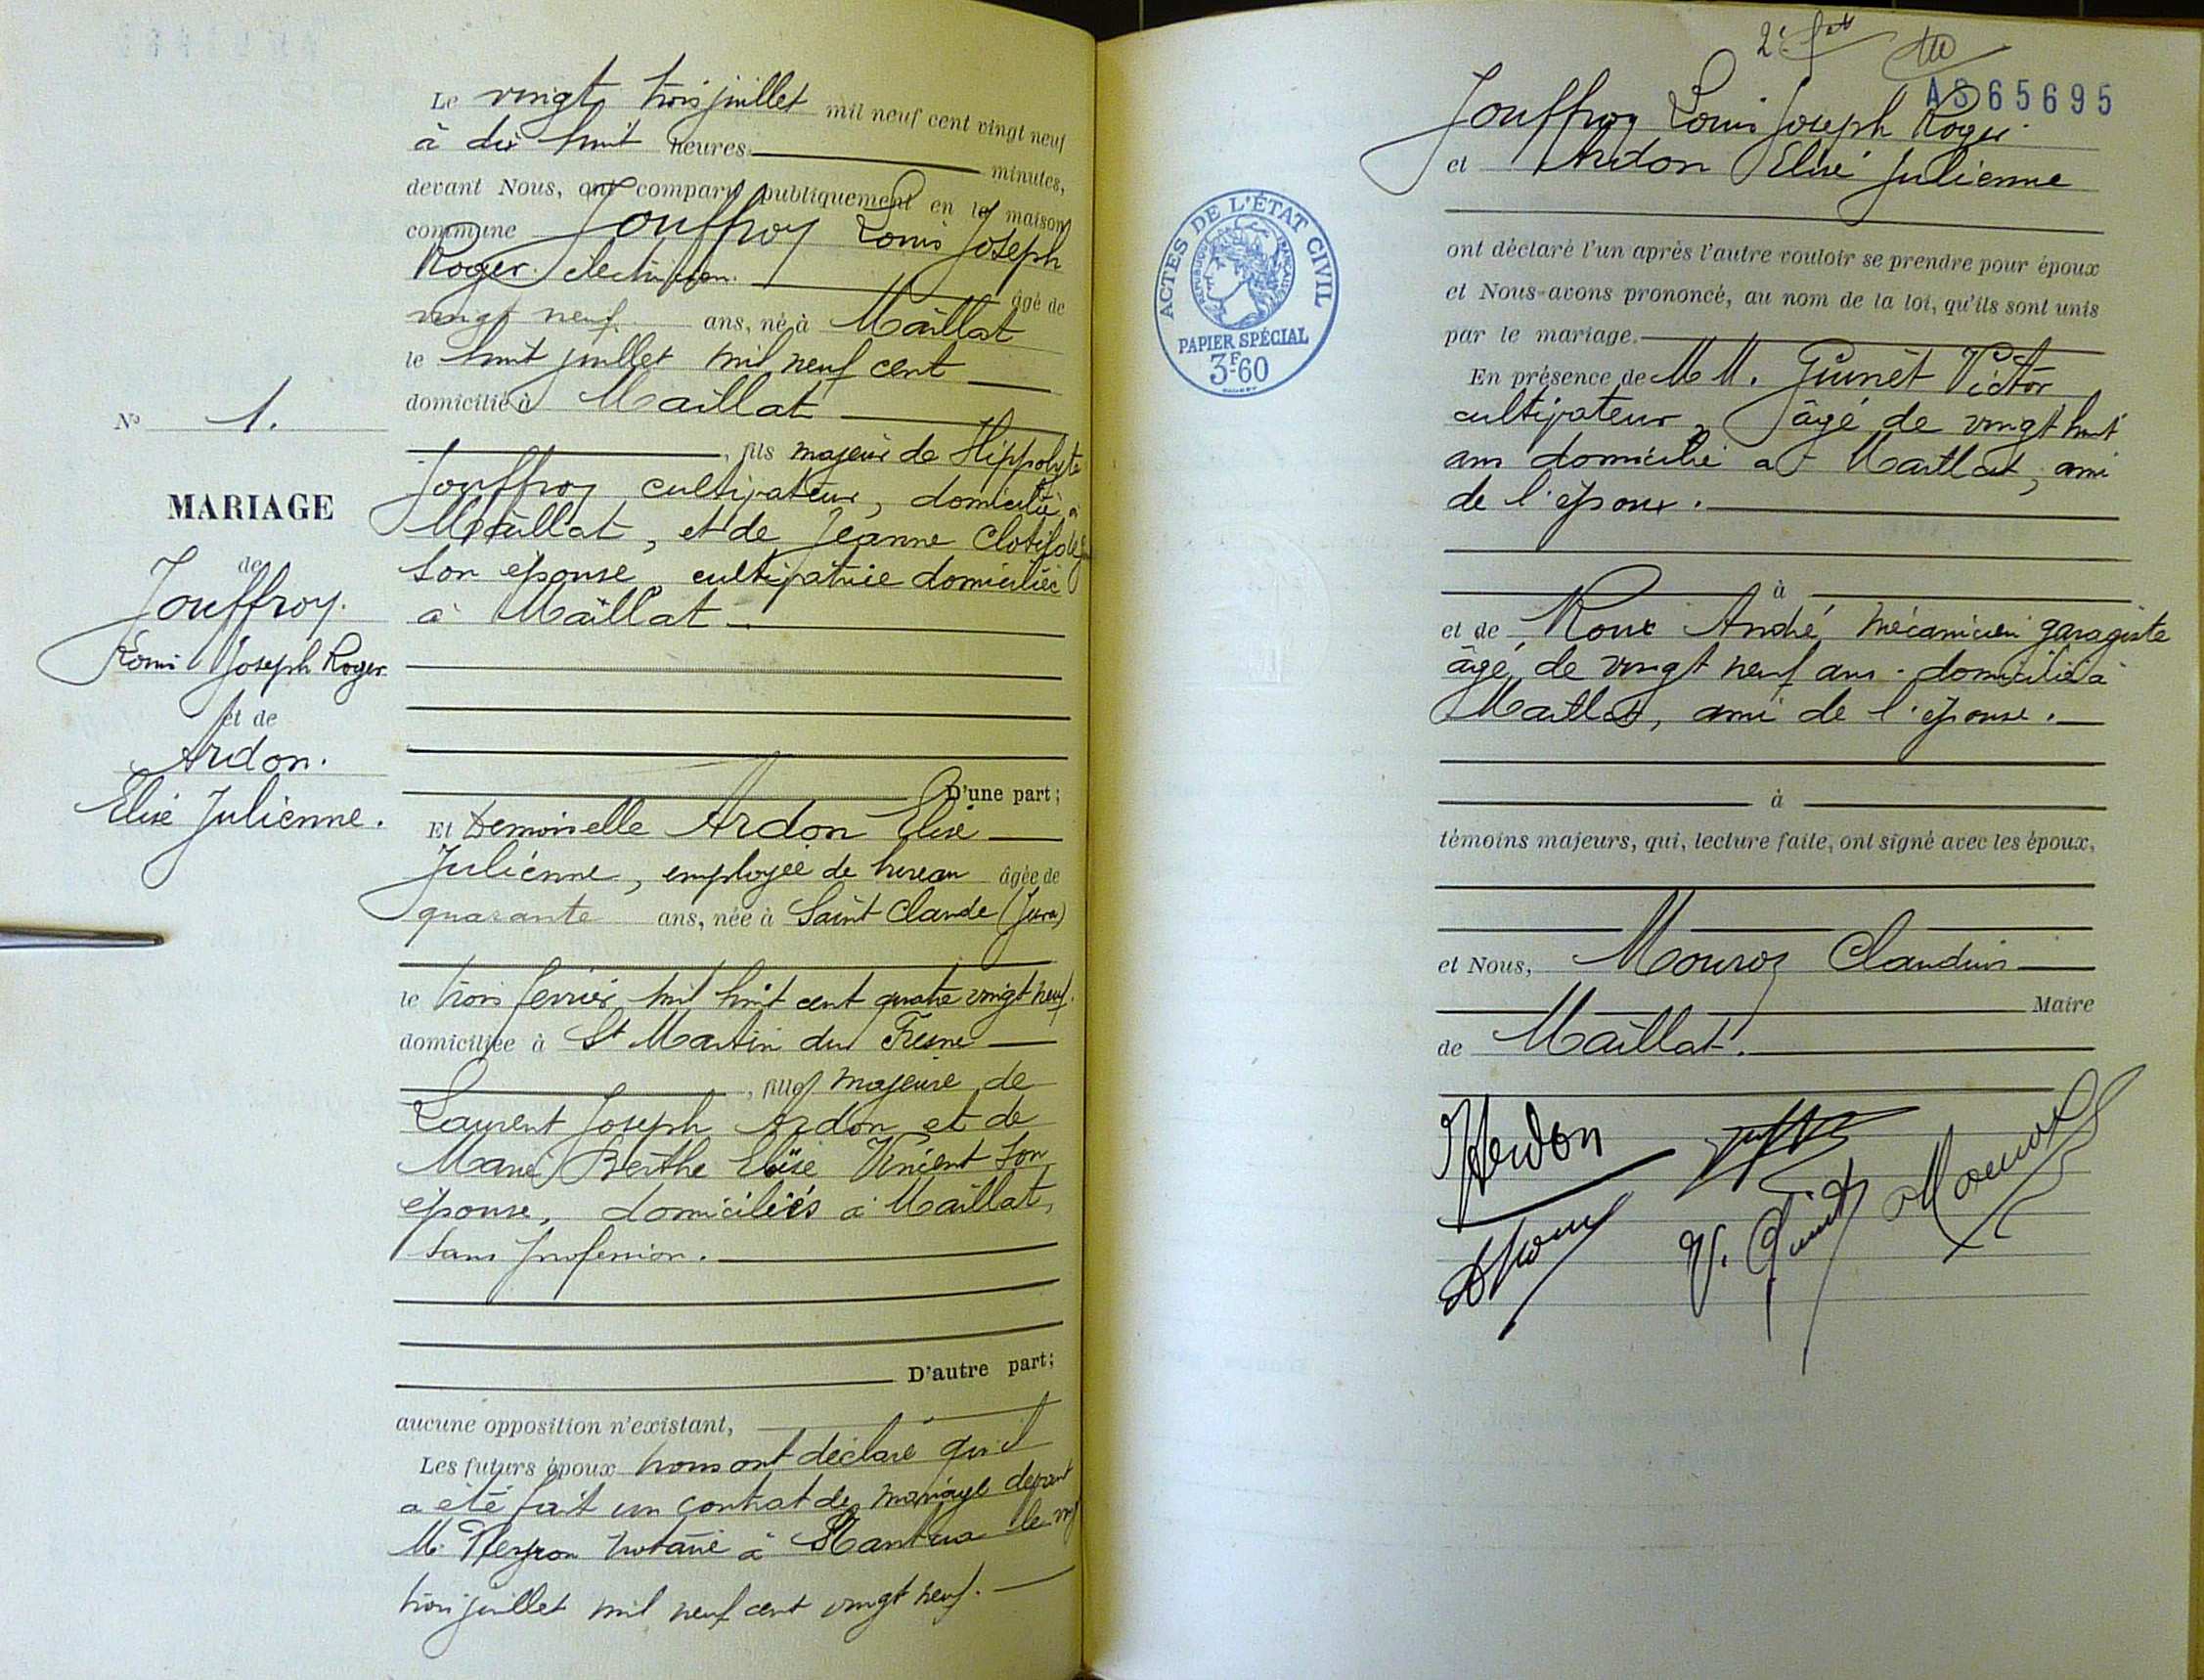 Le vingt trois juillet mil neuf cent vingt neuf
à dix huit heures minutes,
devant Nous, ont comparu publiquement en la maison
commune Jouffroy Louis Joseph
Roger électricien âgé de
vingt neuf ans, né à Maillat
le huit juillet mil neuf cent
domicilié à Maillat
, fils majeur de Hippolyte
Jouffroy cultivateur, domicilié à
Maillat, et de Jeanne Clotilde
son épouse, cultivatrice domiciliée
à Maillat
D'une part;
Et Demoiselle Ardon Elise
Julienne, employée de bureau âgée de
quarante ans, née à Saint Claude (Jura)
le trois février mil huit cent quatre vingt neuf.
domiciliée à St Martin du Fresne
, fille majeure de
Laurent Joseph Ardon et de
Marie Berthe Elise Vincent son
épouse, domiciliés à Maillat,
sans profession.
D'autre part;
aucune opposition n'existant,
Les futurs époux nous ont déclaré qu'il
a été fait un contrat de mariage devant
M. Neyron notaire à Nantua le vingt
trois juillet mil neuf cent vingt neuf.
No 1.
MARIAGE
de
Jouffroy.
Louis Joseph Roger
et de
Ardon.
Elise Julienne.
ACTES DE L'ÉTAT CIVIL
RÉPUBLIQUE FRANÇAISE
PAPIER SPÉCIAL
3F60
AS65695
Jouffroy Louis Joseph Roger
et Ardon Elise Julienne
ont déclaré l'un après l'autre vouloir se prendre pour époux
et Nous avons prononcé, au nom de la loi, qu'ils sont unis
par le mariage.
En présence de MM. Guinet Victor
cultivateur, âgé de vingt huit
ans domicilié à Maillat, ami
de l'époux.
à
et de Roux André mécanicien garagiste
âgé de vingt neuf ans - domicilié à
Maillat, ami de l'épouse.
à
témoins majeurs, qui, lecture faite, ont signé avec les époux,
et Nous, Mouroz Claudius
Maire
de Maillat.
Ardon
V. Guinet